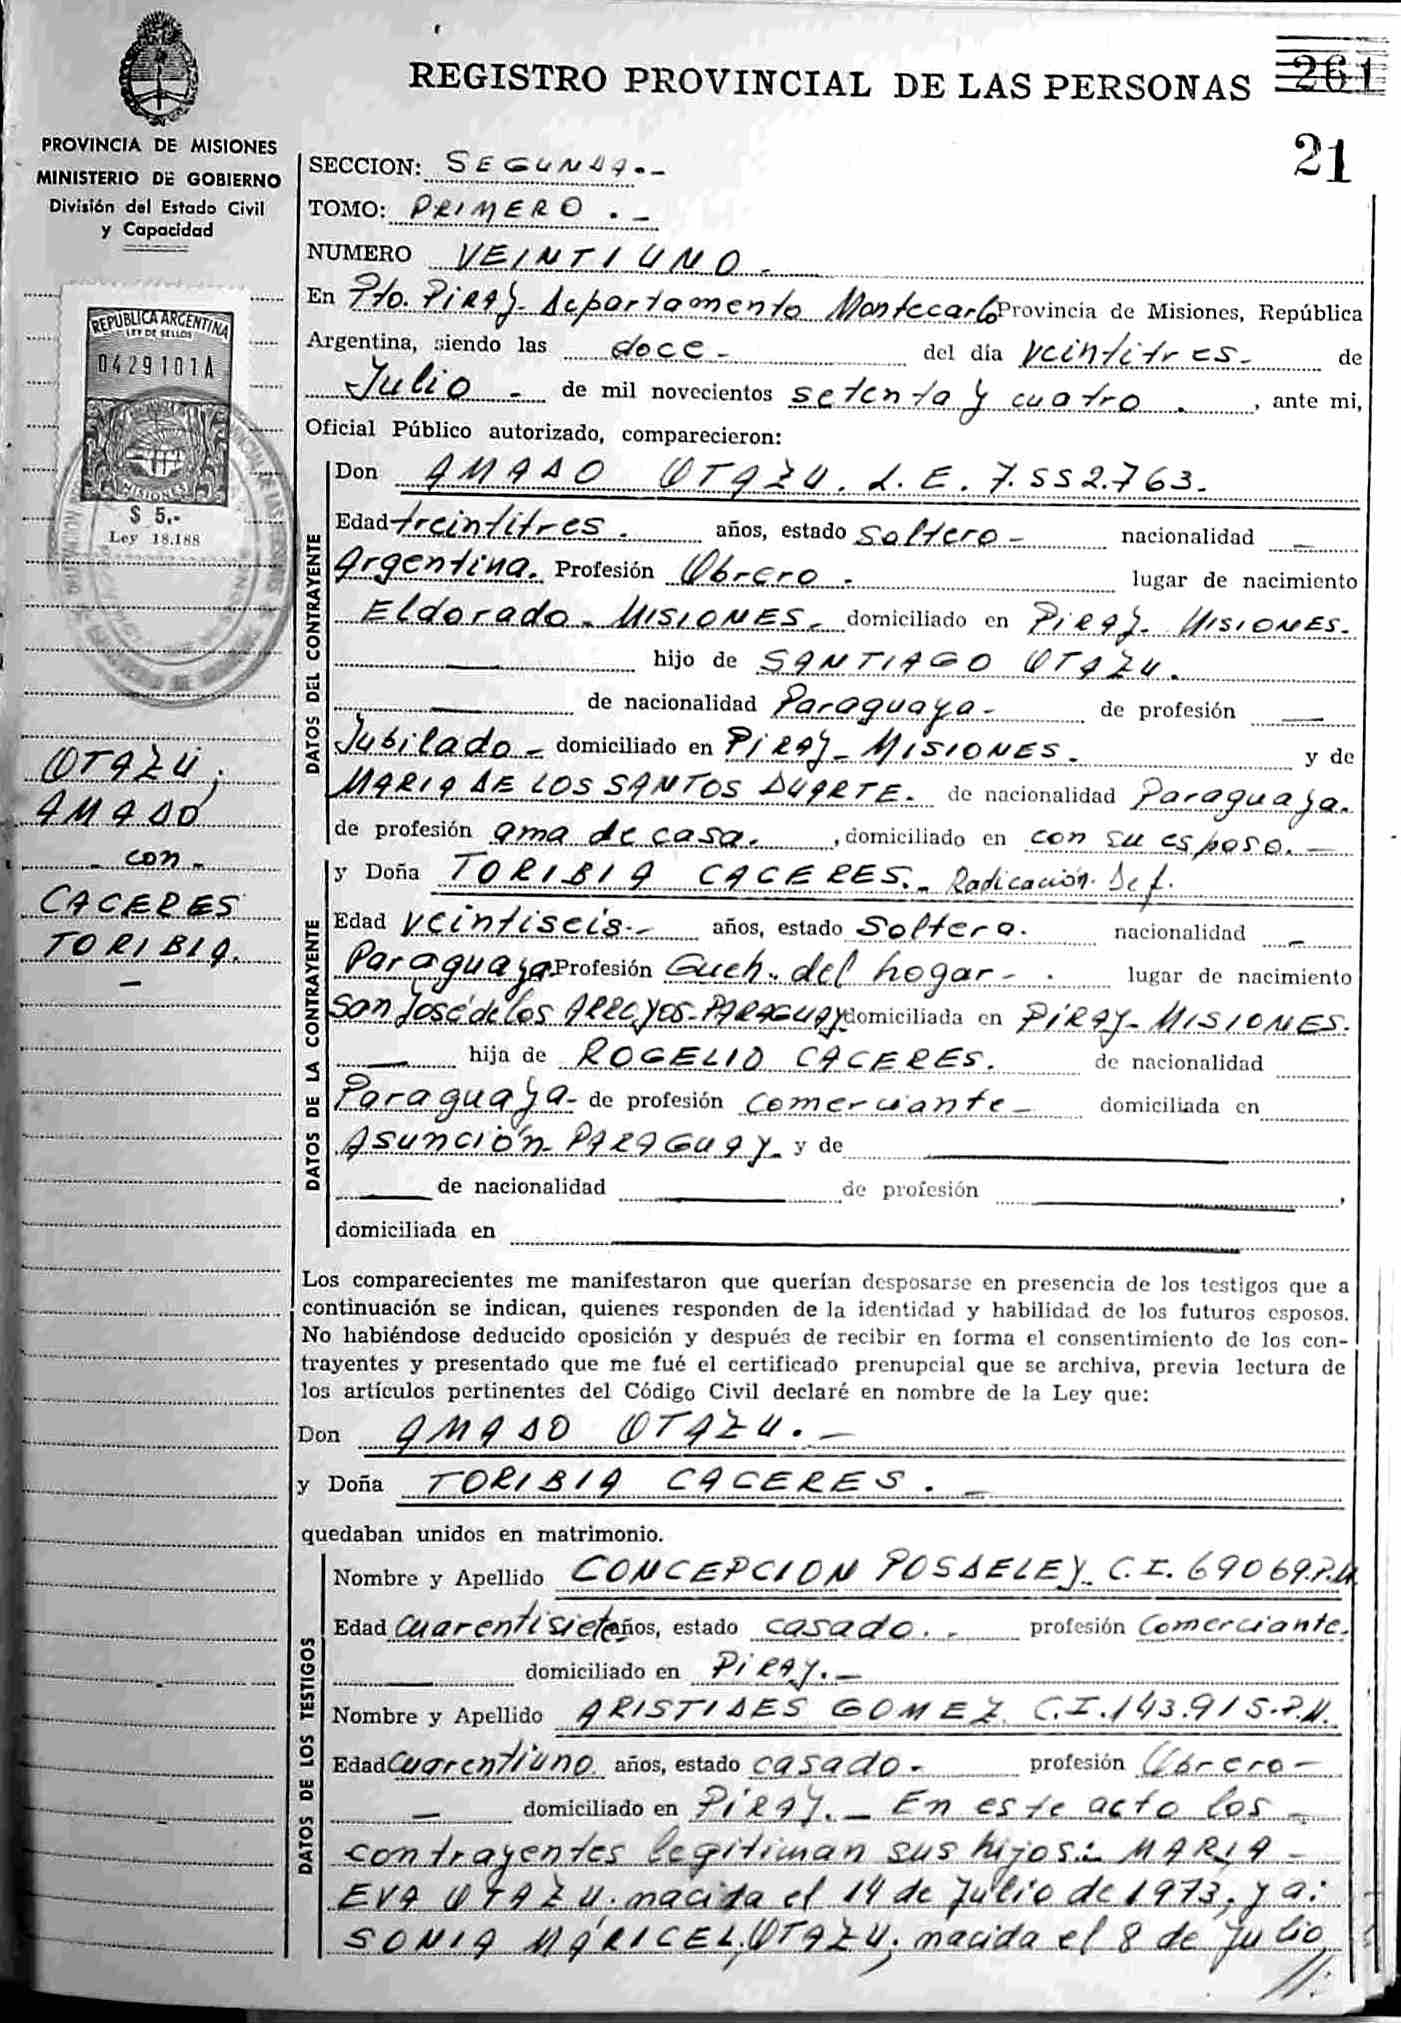 REGISTRO PROVINCIAL DE LAS PERSONAS
261
21
PROVINCIA DE MISIONES
MINISTERIO DE GOBIERNO
División del Estado Civil
y Capacidad
REPUBLICA ARGENTINA
LEY DE SELLOS
0429101A
MISIONES
$ 5,-
Ley 18.188
OTAZÚ,
AMADO
- con -
CACERES
TORIBIA.
SECCION: SEGUNDA.-
TOMO: PRIMERO.-
NUMERO VEINTIUNO.
En Pto. PIRAY- departamento Montecarlo Provincia de Misiones, República
Argentina, siendo las doce- del día veintitres- de
Julio - de mil novecientos setenta y cuatro. , ante mi,
Oficial Público autorizado, comparecieron:
DATOS DEL CONTRAYENTE
Don AMADO OTAZU. L.E. 7.552.763.
Edad treintitres. años, estado soltero- nacionalidad -
Argentina. Profesión Obrero. lugar de nacimiento
Eldorado. MISIONES. domiciliado en PIRAY. MISIONES.
hijo de SANTIAGO OTAZU.
de nacionalidad Paraguaya- de profesión -
Jubilado- domiciliado en PIRAY- MISIONES. y de
MARIA DE LOS SANTOS DUARTE. de nacionalidad Paraguaya.
de profesión ama de casa. , domiciliado en con su esposo.-
DATOS DE LA CONTRAYENTE
y Doña TORIBIA CACERES.- Radicación Def.
Edad veintiseis.- años, estado Soltera. nacionalidad -
Paraguaya Profesión Queh. del hogar-. lugar de nacimiento
San José de los ARROYOS-PARAGUAY domiciliada en PIRAY- MISIONES.
hija de ROGELIO CACERES. de nacionalidad
Paraguaya- de profesión Comerciante- domiciliada en
Asunción- PARAGUAY. y de
de nacionalidad de profesión ,
domiciliada en
Los comparecientes me manifestaron que querían desposarse en presencia de los testigos que a
continuación se indican, quienes responden de la identidad y habilidad de los futuros esposos.
No habiéndose deducido oposición y después de recibir en forma el consentimiento de los con-
trayentes y presentado que me fué el certificado prenupcial que se archiva, previa lectura de
los artículos pertinentes del Código Civil declaré en nombre de la Ley que:
Don AMADO OTAZU.-
y Doña TORIBIA CACERES.-
quedaban unidos en matrimonio.
DATOS DE LOS TESTIGOS
Nombre y Apellido CONCEPCION POSDELEY. C.I. 69069.P.M.
Edad Cuarentisiete años, estado casado.- profesión Comerciante.
domiciliado en PIRAY.-
Nombre y Apellido ARISTIDES GOMEZ C.I.143.915.P.M.
Edad Cuarentiuno años, estado casado- profesión Obrero-
domiciliado en PIRAY.- En este acto los-
contrayentes legitiman sus hijos: MARIA-
EVA OTAZU. nacida el 14 de Julio de 1973, y a:
SONIA MARICEL OTAZU; nacida el 8 de Julio
//: